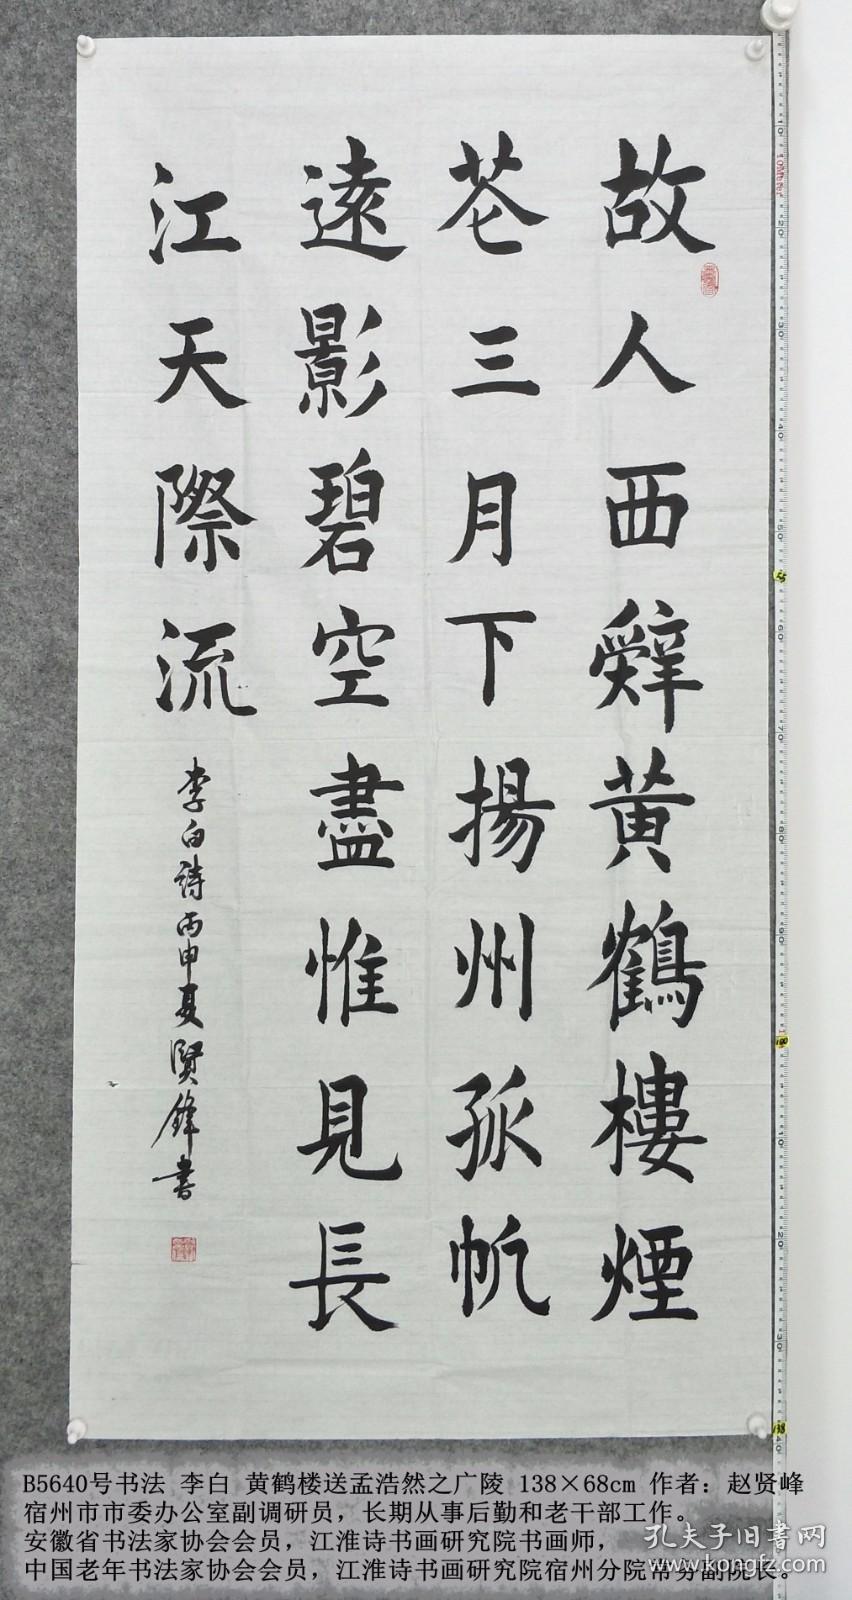 故人西辤黄鶴樓煙
苍三月下揚州孤帆
遠影碧空盡惟見長
江天際流
李白詩丙申夏賢鋒書
B5640号书法 李白 黄鹤楼送孟浩然之广陵 138×68cm 作者：赵贤峰
宿州市市委办公室副调研员，长期从事后勤和老干部工作。
安徽省书法家协会会员，江淮诗书画研究院书画师，
中国老年书法家协会会员，江淮诗书画研究院宿州分院常务副院长。
孔夫子旧书网
www.kongfz.com